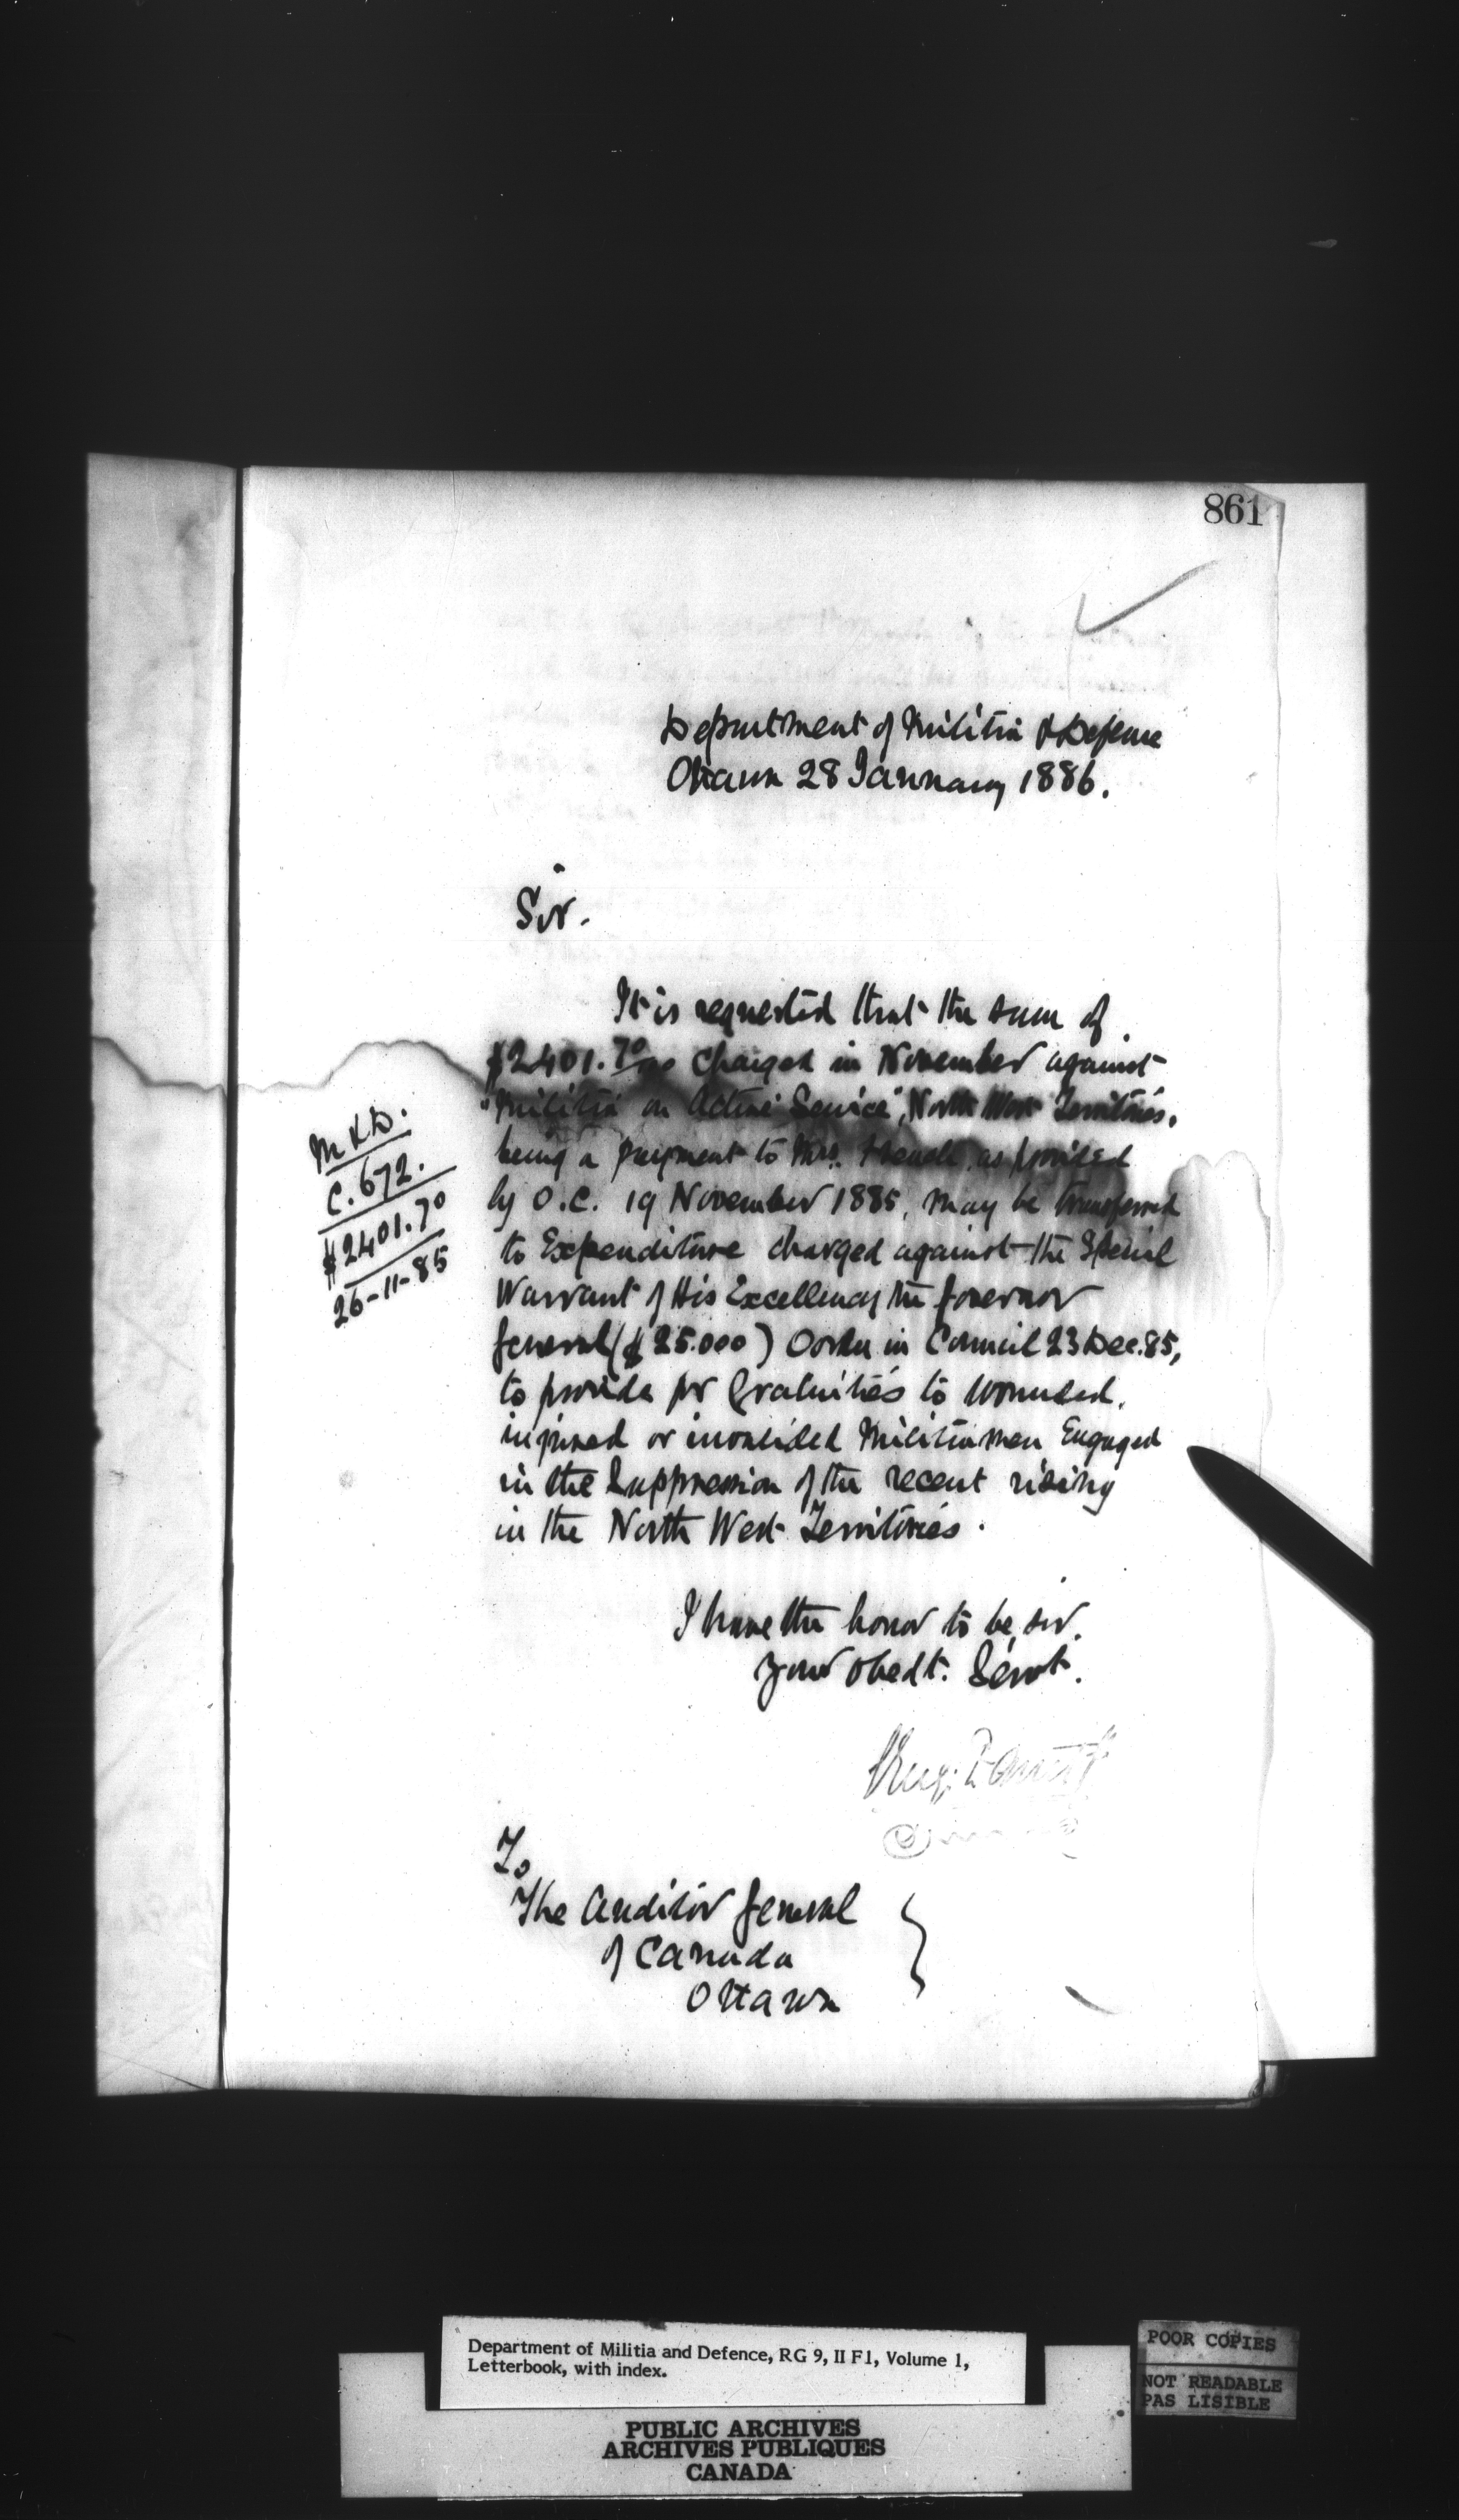 861
Department of Militia & Defence
Ottawa 28 January 1886.
Sir.
It is requested that the sum of
$2401.70/100 charged in November against
"Militia on Active Service", North West Territories,
being a payment to Mrs. French, as provided
by O.C. 19 November 1885, may be transferred
to Expenditure charged against the Special
Warrant of His Excellency the Governor
General ($25.000) Order in Council 23 Dec. 85,
to provide for Gratuities to wounded,
injured or invalided Militiamen Engaged
in the Suppression of the recent rising
in the North West Territories.
M & D.
C. 672.
$2401.70
26-11-85
I have the honor to be, sir.
your obedt. Servt.
To
The Auditor General
of Canada
Ottawa
Department of Militia and Defence, RG 9, II F1, Volume 1,
Letterbook, with index.
PUBLIC ARCHIVES
ARCHIVES PUBLIQUES
CANADA
POOR COPIES
NOT READABLE
PAS LISIBLE